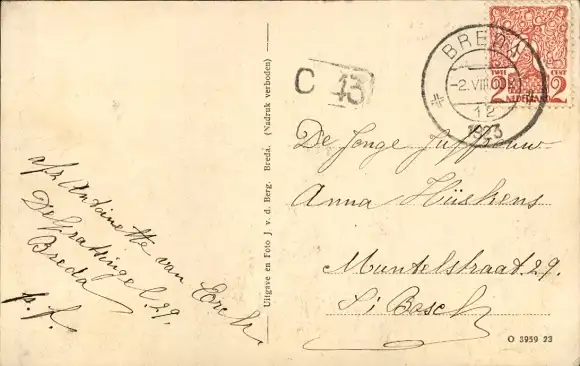 afz. Antoinette van
Breda
p.f.
Uitgave en Foto J. v. d. Berg, Breda. (Nadruk verboden)
C 43
BREDA
2.VIII
12
1923
TWEE CENT
2 2
NEDERLAND
De Jonge Juffrouw
Anna Hüskens
Muntelstraat.29.
's Bosch
O 3959 23